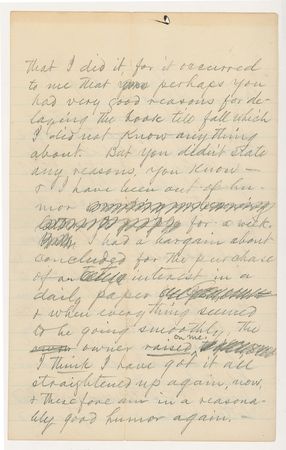 that I did it, for it occurred
to me that perhaps you
had very good reasons for de-
laying the book till fall which
I did not know anything
about. But you didn't state
any reasons, you know —
& I have been out of hu-
mor
for a week.
I had a bargain about
concluded for the purchase
of an interest in a
daily paper
& when everything seemed
to be going smoothly, the
owner raised on me.
I think I have got it all
straightened up again, now,
& therefore am in a reasona-
bly good humor again. —